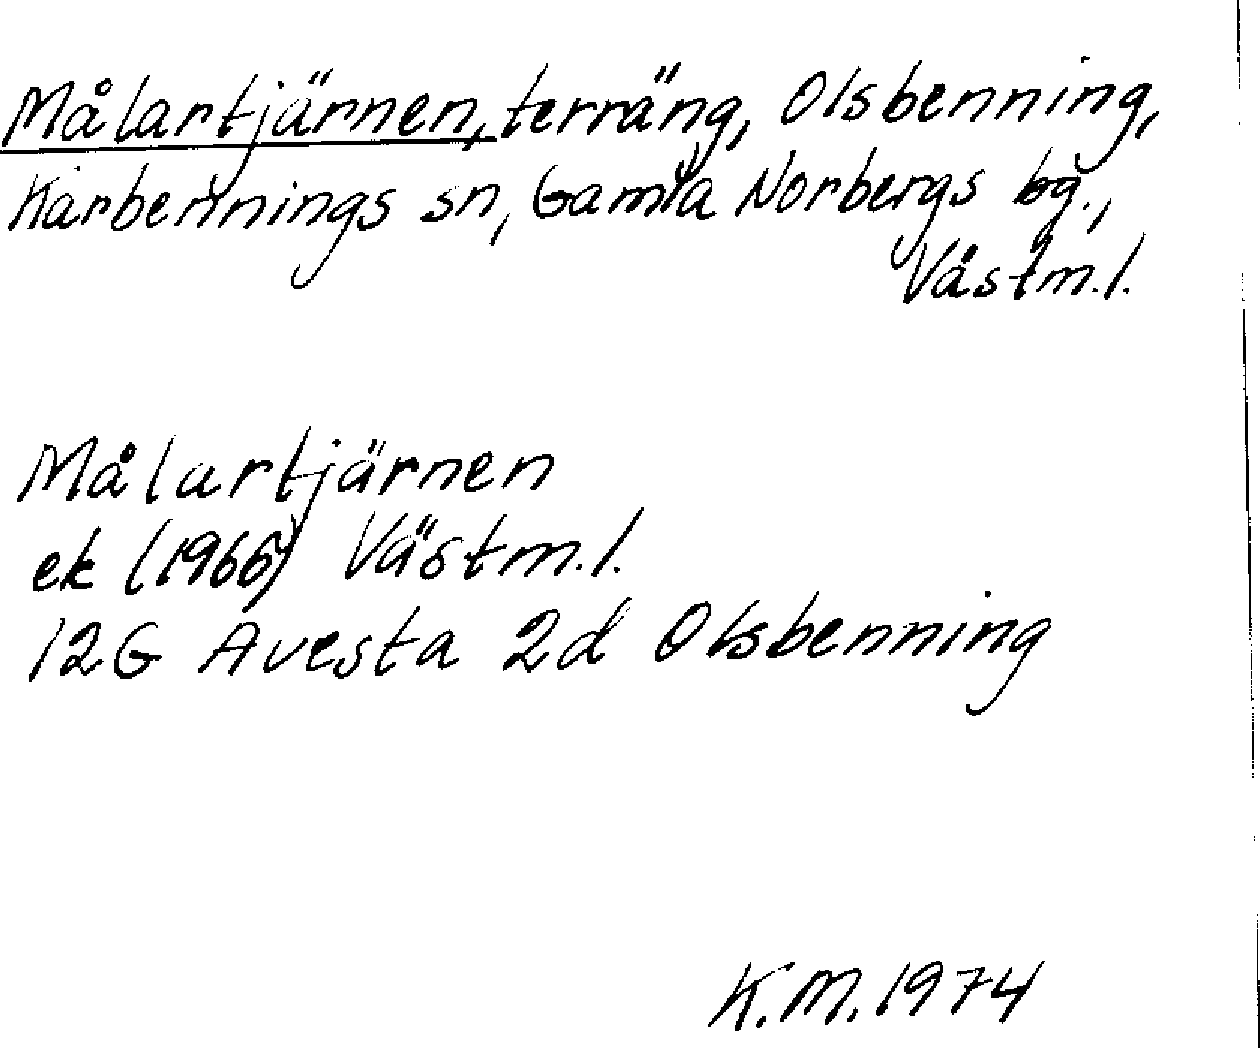 Målartjärnen, terräng, Olsbenning,
Karbennings sn, Gamla Norbergs bg.,
Västm.l.
Målartjärnen
ek (1966) Västm.l.
12G Avesta 2d Olsbenning
K.M. 1974